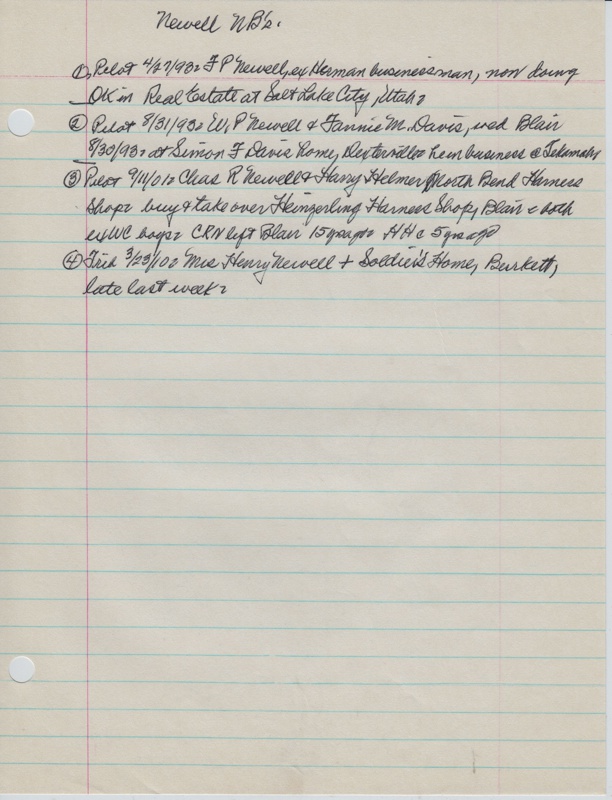 Newell NB's.
① Pilot 4/27/93: F P Newell, ex Herman businessman, now doing
OK in Real Estate at Salt Lake City, Utah:
② Pilot 8/31/93: W. P Newell & Fannie M. Davis, wed Blair
8/30/93: at Simon F Davis home, Dexterville: he in business @ Tekamah:
③ Pilot 9/11/01: Chas R Newell & Harry Helmer North Bend Harness
Shop: buy & take over Heinzerling Harness Shop, Blair: both
ex WC boys: CRN left Blair 15 yrs ago: HH: 5 yrs ago
④ Trib 3/23/10: Mrs Henry Newell + Soldier's Home, Burkett,
late last week: